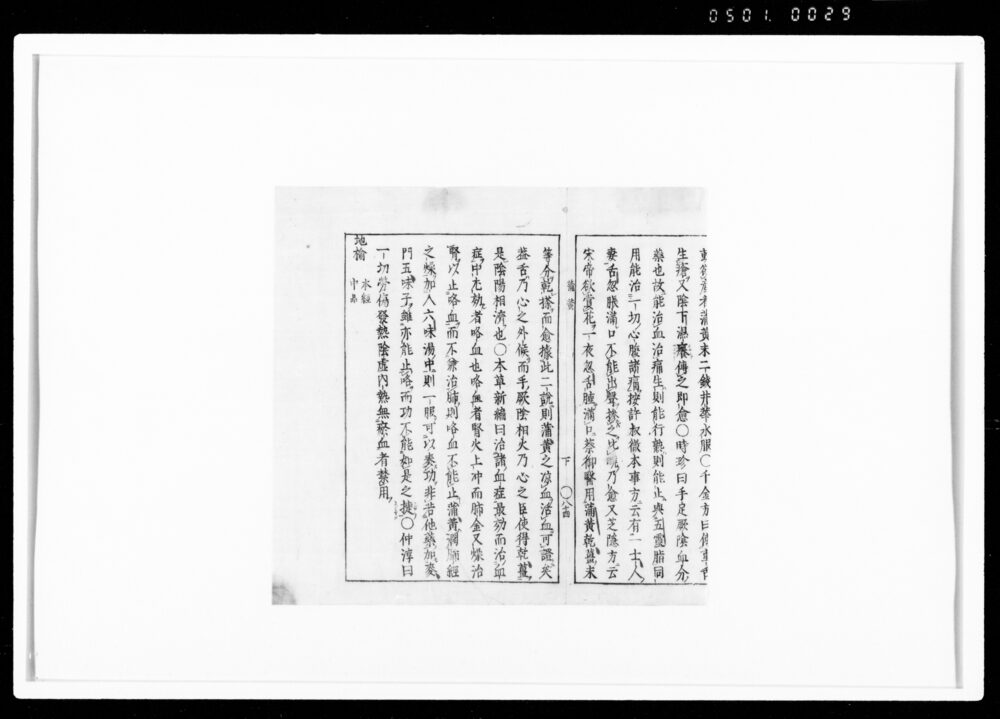 0501. 0029
蒲黃末二錢井華水服〇千金方曰
生瘡又陰下濕癢傅之即愈〇時珍曰手足厥陰血分
藥也故能治血治痛生則能行熟則能止與五靈脂同
用能治一切心腹諸痛按許叔微本事方云有一士人
妻舌忽脹滿口不能出聲摻之比曉乃愈又芝隱方云
宋帝欲賞花一夜忽舌腫滿口蔡御醫用蒲黃乾薑末
蒲黃
下 〇八十四
等分乾搽而愈據此二說則蒲黃之凉血活血可證矣
盖舌乃心之外候而手厥陰相火乃心之臣使得乾薑
是陰陽相濟也〇本草新編曰治諸血症最効而治血
症中尤効者咯血也咯血者腎火上冲而肺金又燥治
腎以止咯血而不兼治肺則咯血不能止蒲黃潤肺經
之燥加入六味湯中則一服可以奏功非若他藥加麥
門五味子雖亦能止咯而功不能如是之捷〇仲淳曰
一切勞傷發熱陰虛內熱無瘀血者禁用
地榆
本經
中品